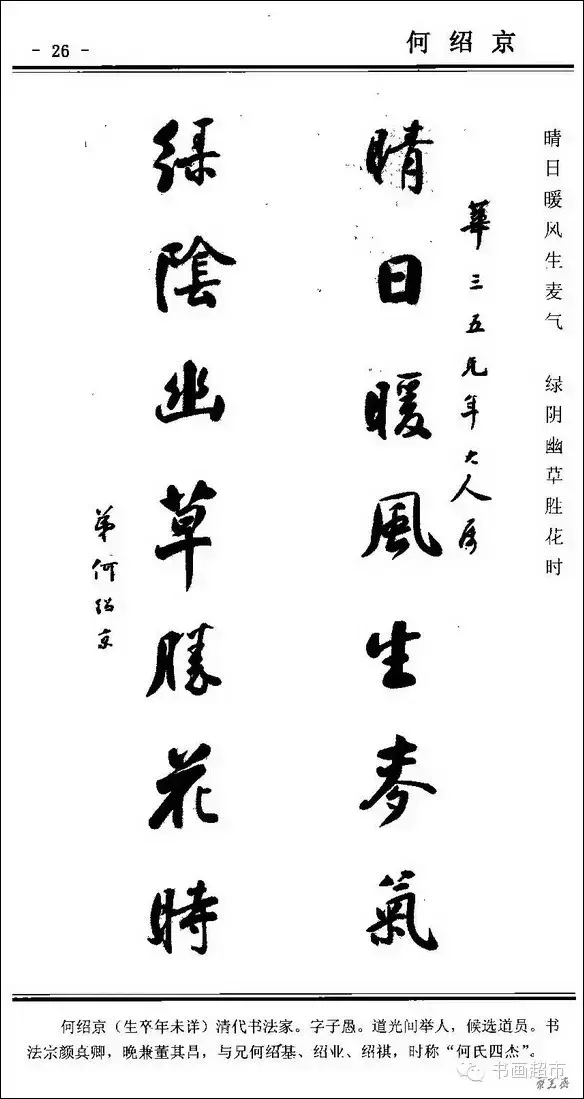 - 26 -
何绍京
晴日暖风生麦气 绿阴幽草胜花时
晴日暖風生麥氣
華三五兄年大人属
緑陰幽草勝花時
弟何绍京
何绍京（生卒年未详）清代书法家。字子愚。道光间举人，候选道员。书
法宗颜真卿，晚兼董其昌，与兄何绍基、绍业、绍祺，时称“何氏四杰”。
书画超市